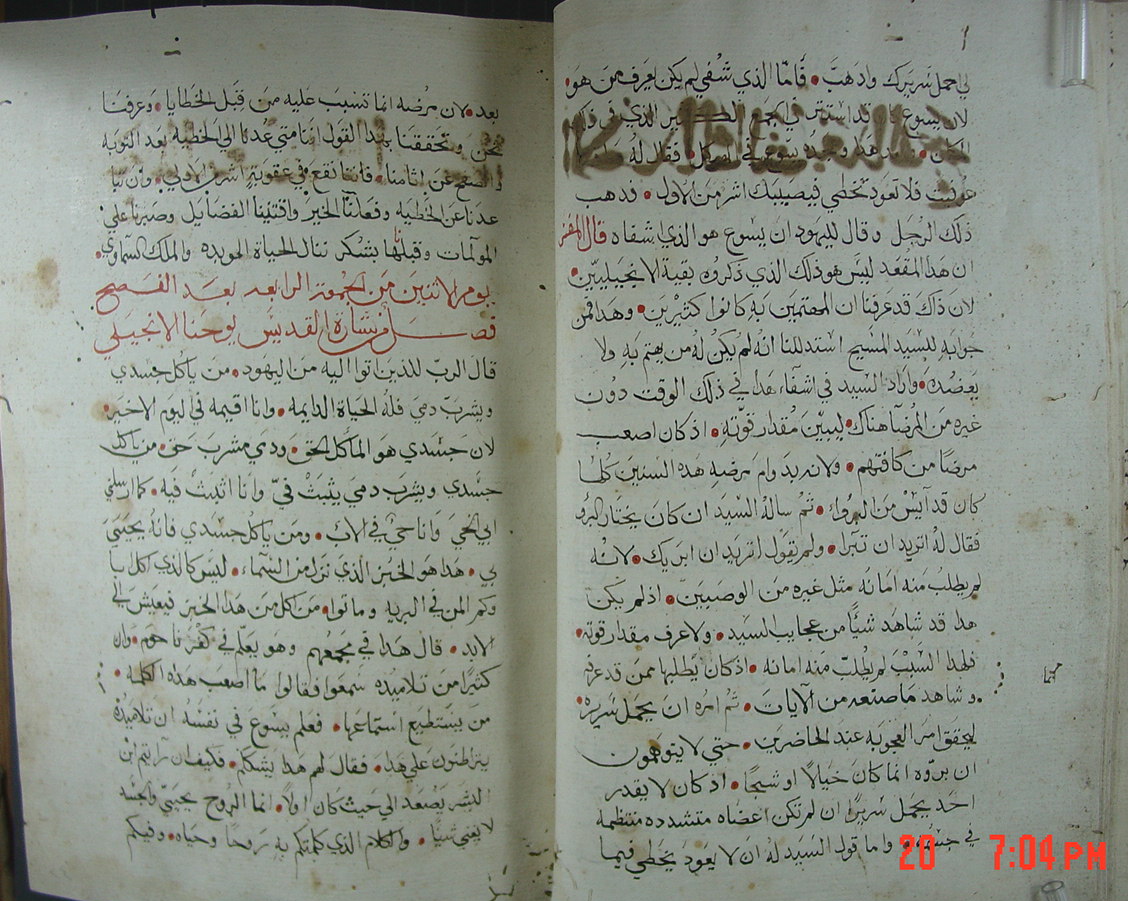 لي احمل سريرك وادهب • فاما الذي شفي لم يكن يعرف من هو
لان يسوع كان قد استتر في الجمع الكبير الذي في ذلك
المكان • هدا وجده يسوع في الهيكل • فقال له
عوفيت فلا تعود تخطي فيصيبك اشر من الاول • فدهب
ذلك الرجل وقال لليهود ان يسوع هو الذي شفاه قال المفسر
ان هدا المقعد ليس هو ذلك الذي ذكروه بقية الانجيليين •
لان ذاك قد عرفنا ان المهتمين به كانوا كثيرين • وهدا فمن
جوابه للسيد المسيح استدللنا انه لم يكن له من يهتم به ولا
يعضده • واراد السيد في اشفاء هدا في ذلك الوقت دون
غيره من المرضا هناك • ليبين مقدار قوته • اذ كان اصعب
مرضا من كافتهم • ولانه بدوام مرضه هده السنين كلها
كان قد آيس من البروء • ثم ساله السيد ان كان يختار البرو
فقال له اتريد ان تبرا • ولم يقول اتريد ان ابريك • لانه
لم يطلب منه امانه مثل غيره من الوصبين • اذ لم يكن
هدا قد شاهد شيئا من عجايب السيد • ولا عرف مقدار قوته •
فلهدا السبب لم يطلب منه امانه • اذ كان يطلبها ممن قد عرفه
وشاهد ما صنعه من الآيات • ثم امره ان يحمل سريره •
ليحقق امر العجوبه عند الحاضرين • حتي لا يتوهمون
ان بروه انما كان خيالا او شبحا • اذ كان لا يقدر
احد يحمل سريرا ان لم تكن اعضاه متشدده منتظمه
في جسمه • واما قول السيد له ان لا يعود يخطي فيما
بعد • لان مرضه انما تسبب عليه من قبل الخطايا • وعرفنا
نحن وتحققنا بهدا القول اننا متي عدنا الي الخطية بعد التوبه
والصفح عن اثامنا • فاننا نقع في عقوبة اشر من الاولي • وان
عدنا عن الخطيه وفعلنا الخير واقتنينا الفضايل وصبرنا علي
المولمات وقبلناها بشكر ننال الحياة الموبده والملك السماوي •
يوم الاثنين من الجمعة الرابعه بعد الفصح
فصل من بشارة القديس يوحنا الانجيلي
قال الرب للذين اتوا اليه من اليهود • من ياكل جسدي
ويشرب دمي فله الحياة الدايمه • وانا اقيمه في اليوم الاخير •
لان جسدي هو الماكل الحق • ودمي مشرب حق • من ياكل
جسدي ويشرب دمي يثبت في وانا اثبت فيه • كما ارسلني
ابي الحي وانا حي في الاب • ومن ياكل جسدي فانه يحيى
بي • هدا هو الخبز الذي نزل من السماء • ليس كالذي اكل اباوكم
المن في البريه وماتوا • من اكل من هدا الخبز فيعيش الي
الابد • قال هدا في مجمعهم وهو يعلم في كفر ناحوم • وان
كثيرا من تلاميده سمعوا فقالوا ما اصعب هده الكلمه •
من يستطيع استماعها • فعلم يسوع في نفسه ان تلاميده
يتراطنون علي هدا • فقال لهم هدا يشككم • فكيف ان رايتم ابن
البشر يصعد الي حيث كان اولا • انما الروح يحيي والجسد
لا يغني شيئا • والكلام الذي كلمتكم به روحا وحياه • وفيكم
20 7:04 PM